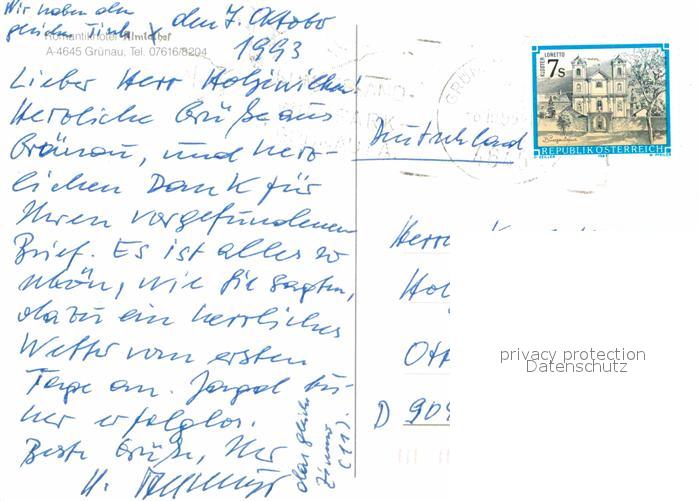 Wir haben den
gleichen Tisch
den 7. Oktober
1993
Romantikhotel Almtalhof
A-4645 Grünau, Tel. 07616/8204
Lieber Herr
Herzliche Grüße aus
Grünau, und herz-
lichen Dank für
Ihren vorgefundenen
Brief. Es ist alles so
schön, wie Sie sagten,
dazu ein herrliches
Wetter vom ersten
Tage an. Jagd bis-
her erfolglos.
Beste Grüße, Ihr
H.
das gleiche
Zimmer
(11).
Deutschland
KLOSTER LORETTO
7s
REPUBLIK ÖSTERREICH
Herrn
Hol
Ott
D 909
privacy protection
Datenschutz